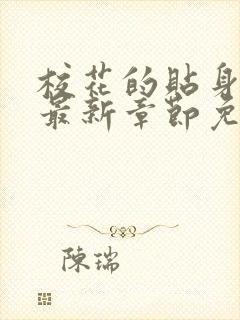 校花的貼身
最新章節免
陳瑞